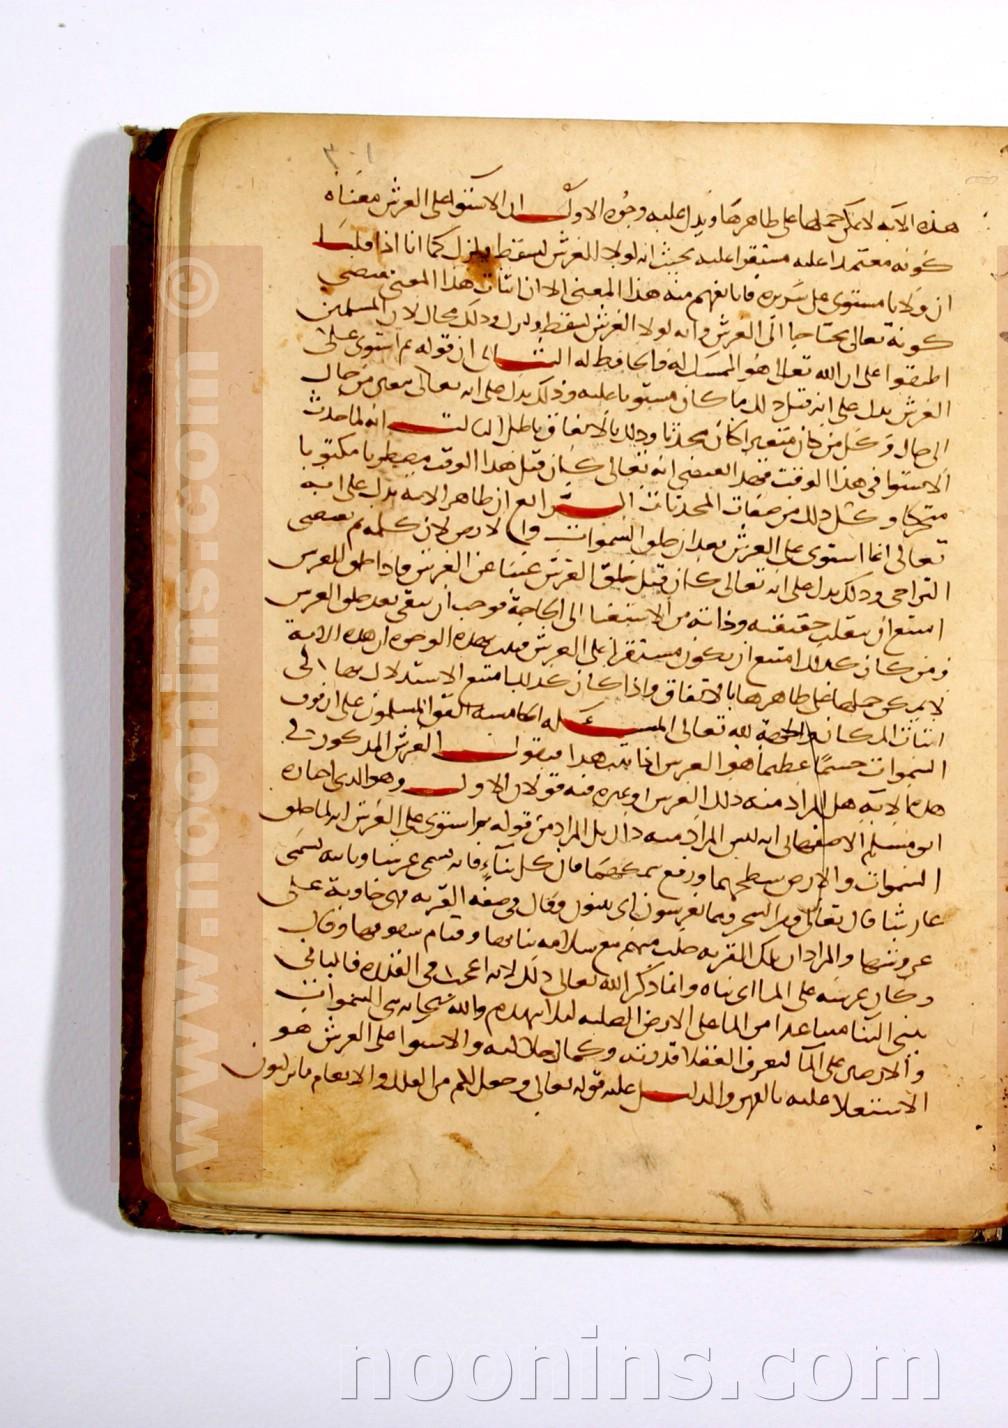 ٣٠١
هذه الآية لا يمكن حملها على ظاهرها ويدل عليه وجوه الاول ان الاستوا على العرش معناه
كونه معتمدا عليه مستقرا عليه بحيث انه لولا العرش لسقط ونزل كما انا اذا قلنا
ان فلانا مستوى على سريره فانا نفهم منه هذا المعنى الا ان اثبات هذا المعنى يقتضى
كونه تعالى محتاجا الى العرش وانه لولا العرش لسقط ونزل وذلك محال لان المسلمين
اطبقوا على ان الله تعالى هو الممسك له والحافظ له الثانى ان قوله ثم استوى على
العرش يدل على انه قبل ذلك ما كان مستويا عليه وذلك يدل على انه تعالى يتغير من حال
الى حال وكل من كان متغيرا كان محدثا وذلك بالاتفاق باطل الثالث انه لما حدث
الاستوا فى هذا الوقت فهذا يقتضى انه تعالى كان قبل هذا الوقت مضطربا
متحركا وكل ذلك من صفات المحدثات الرابع ان ظاهر الاية يدل على انه
تعالى انما استوى على العرش بعد ان خلق السموات والارض لان كلمه ثم تقتضى
التراخى وذلك يدل على انه تعالى كان قبل خلق العرش غنيا عن العرش فاذا خلق العرش
امتنع ان ينقلب حقيقته وذاته من الاستغنا الى الحاجة فوجب ان يبقى بعد خلق العرش
ومن كان كذلك امتنع ان يكون مستقرا على العرش فثبت بهذه الوجوه ان هذه الاية
لا يمكن حملها على ظاهرها بالاتفاق واذا كان كذلك امتنع الاستدلال بها فى
اثبات المكان والجهة لله تعالى المسئله الخامسة اتفق المسلمون على ان فوق
السموات جسما عظيما هو العرش اذا ثبت هذا فنقول العرش المذكور فى
هذه الآية هل المراد منه ذلك العرش او غيره فيه قولان الاول وهو الذى اختاره
ابو مسلم الاصفهانى انه ليس المراد منه ذاك بل المراد من قوله ثم استوى على العرش انه لما خلق
السموات والارض سطحها ورفع سمكها فان كل بنآء فانه يسمى عرشا وبانيه يسمى
عارشا قال تعالى ومن الشجر ومما يعرشون اى يبنون وقال فى صفة القريه فهى خاوية على
عروشها والمراد ان تلك القريه خلت منهم مع سلامه بنائها وقيام سقوفها وقال
وكان عرشه على الما اى بناه وانما ذكر الله تعالى ذلك لانه اعجب فى القدره فالبانى
يبنى البنا متباعدا من الما على الارض الصلبه لئلا ينهدم والله سبحانه بنى السموات
والارض على المآ ليعرف العقلا قدرته وكمال جلالته والاستوا على العرش هو
الاستعلا عليه بالقهر والدليل عليه قوله تعالى وجعل لكم من الفلك والانعام ما تركبون
© www.noonins.com
noonins.com